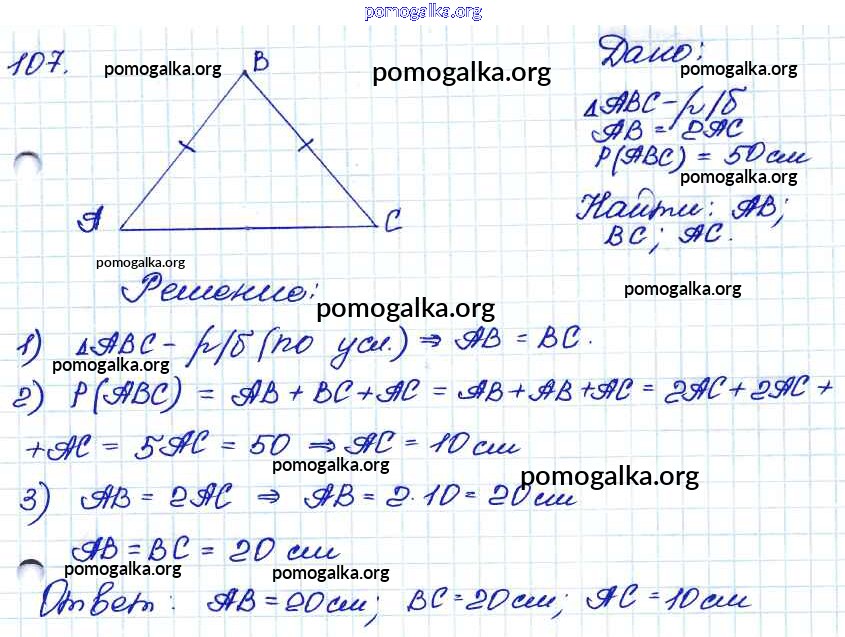 pomogalka.org
107.
B
Дано:
pomogalka.org
pomogalka.org
pomogalka.org
△ABC - р/б
AB = 2AC
P(ABC) = 50 см
pomogalka.org
A
C
Найти: AB;
BC; AC.
pomogalka.org
Решение:
pomogalka.org
pomogalka.org
1) △ABC - р/б (по усл.) ⇒ AB = BC.
pomogalka.org
2) P(ABC) = AB + BC + AC = AB + AB + AC = 2AC + 2AC +
+ AC = 5AC = 50 ⇒ AC = 10 см
pomogalka.org
pomogalka.org
3) AB = 2AC ⇒ AB = 2·10 = 20 см
AB = BC = 20 см
pomogalka.org
pomogalka.org
Ответ: AB = 20 см; BC = 20 см; AC = 10 см